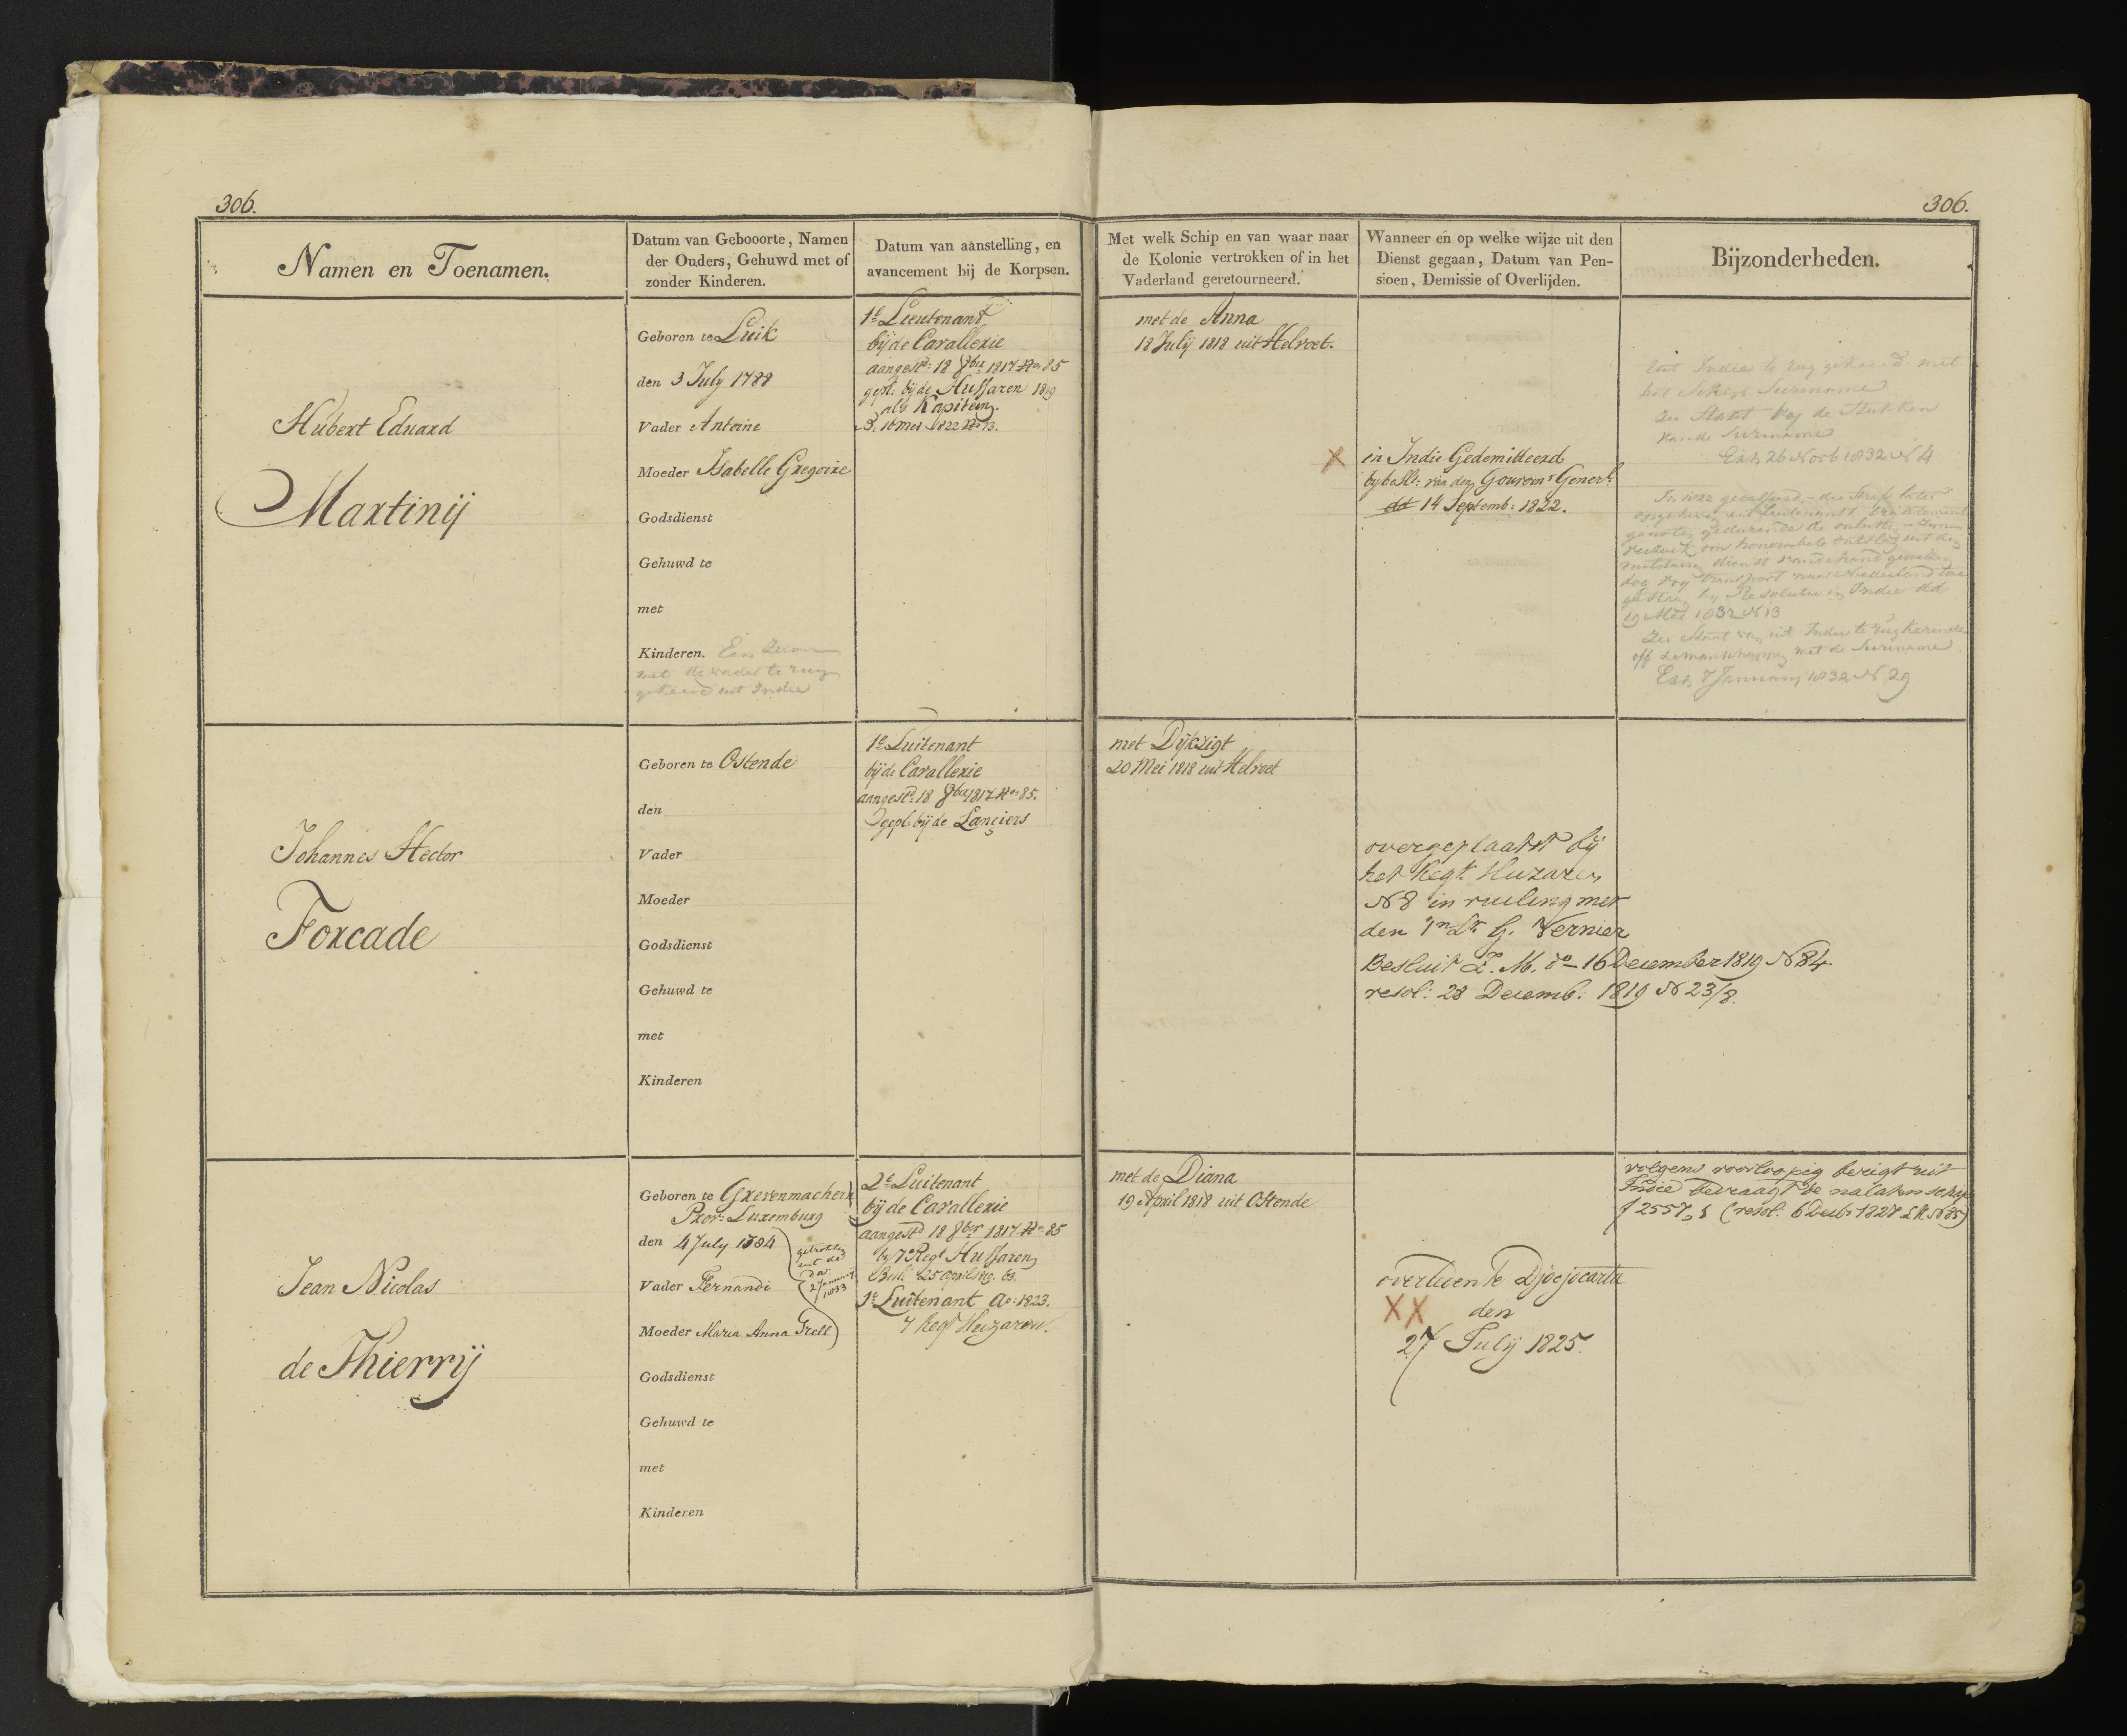 306.
306.
Namen en Toenamen.
Datum van Gebooorte, Namen
der Ouders, Gehuwd met of
zonder Kinderen.
Datum van aanstelling, en
avancement bij de Korpsen.
Met welk Schip en van waar naar
de Kolonie vertrokken of in het
Vaderland geretourneerd.
Wanneer en op welke wijze uit den
Dienst gegaan, Datum van Pen-
sioen, Demissie of Overlijden.
Bijzonderheden.
Hubert Eduard
Martinij
Geboren te Luik
den 3 July 1788
Vader Antoine
Moeder Isabelle Gregoire
Godsdienst
Gehuwd te
met
Kinderen. Een Zoon
met de vader te rug
gekeerd uit Indie
1e Lieutenant
bij de Cavallerie
aangestd: 18 8ber 1817 No 85
gepl. bij de Hussaren 1819
als Kapitein.
B. 16 Mei 1822 No 13.
met de Anna
18 Julij 1818 uit Helvoet.
X in Indie Gedemitteerd
by beslt: van den Gouvernr Generl:
dd 14 Septemb: 1822.
Uit Indie te rug gekeerd met
het Schip Suriname
Zie Staat bij de Stukken
van de Suriname
Exh 26 Novb 1832 N 4
In 1822 gecasseerd - die straf later
gedurende de
om honorabel ontslag uit den
militairen dienst van de hand gewezen
doch vry transport naar Nederland toe
gestaan by Resolutie in Indie dd
19 Mei 1832 N 13
Zie Staat van uit Indie te rug kerende
off & manschappen met de Suriname
Exh 7 January 1832 N 29
Johannes Hector
Forcade
Geboren te Ostende
den
Vader
Moeder
Godsdienst
Gehuwd te
met
Kinderen
1e Luitenant
bij de Cavallerie
aangestd: 18 8ber 1817 No 85.
gepl. bij de Lanciers
met Dijkzigt
20 Mei 1818 uit Helvoet
overgeplaatst bij
het Regt Huzaren
N 8 in ruiling met
den 1n Lt G. Vernier
Besluit Z. M. do 16 December 1819 N 84.
resol: 28 Decemb: 1819 N 23/8.
Jean Nicolas
de Thierrij
Geboren te Grevenmachern
Prov: Luxemburg
den 4 July 1784
getrokken
uit de
da:
2 January
1833
Vader Fernandi
Moeder Maria Anna Grell
Godsdienst
Gehuwd te
met
Kinderen
2e Luitenant
bij de Cavallerie
aangestd 18 8ber 1817 No 85
by 7e Regt Hussaren
Besl: 25 April 1819. 63.
1e Luitenant Ao: 1823.
7 Regt Huzaren.
met de Diana
19 April 1818 uit Ostende
overleden te Djocjocarta
XX den
27 Julij 1825.
volgens voorloopig berigt uit
Indie bedraagt de nalatenschap
f 2557,8 (resol: 6 Decbr 1827 L N N 35)